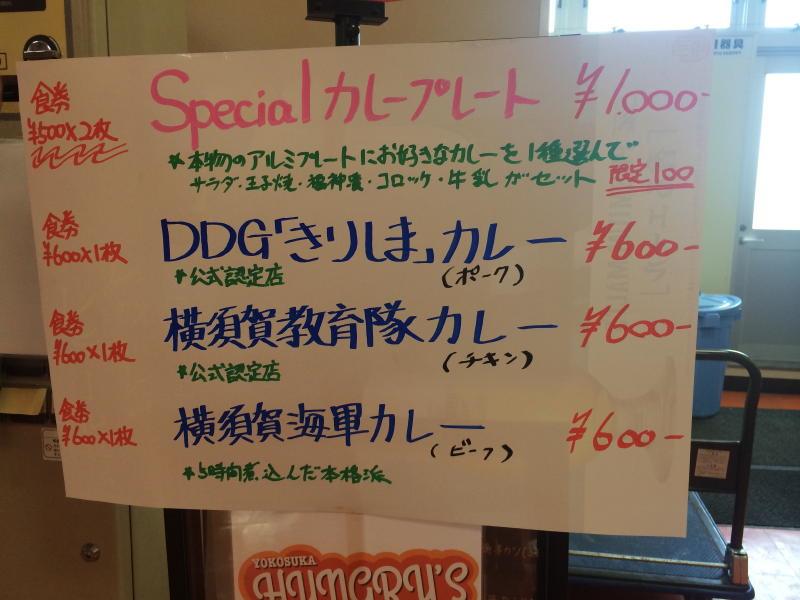 食券
¥500×2枚
Specialカレープレート ¥1,000-
*本物のアルミプレートにお好きなカレーを1種選んで
サラダ・玉子焼・福神漬・コロッケ・牛乳がセット 限定100
食券
¥600×1枚
DDG「きりしま」カレー ¥600-
*公式認定店 (ポーク)
食券
¥600×1枚
横須賀教育隊カレー ¥600-
*公式認定店 (チキン)
食券
¥600×1枚
横須賀海軍カレー ¥600-
(ビーフ)
*5時間煮込んだ本格派
YOKOSUKA
HUNGRY'S